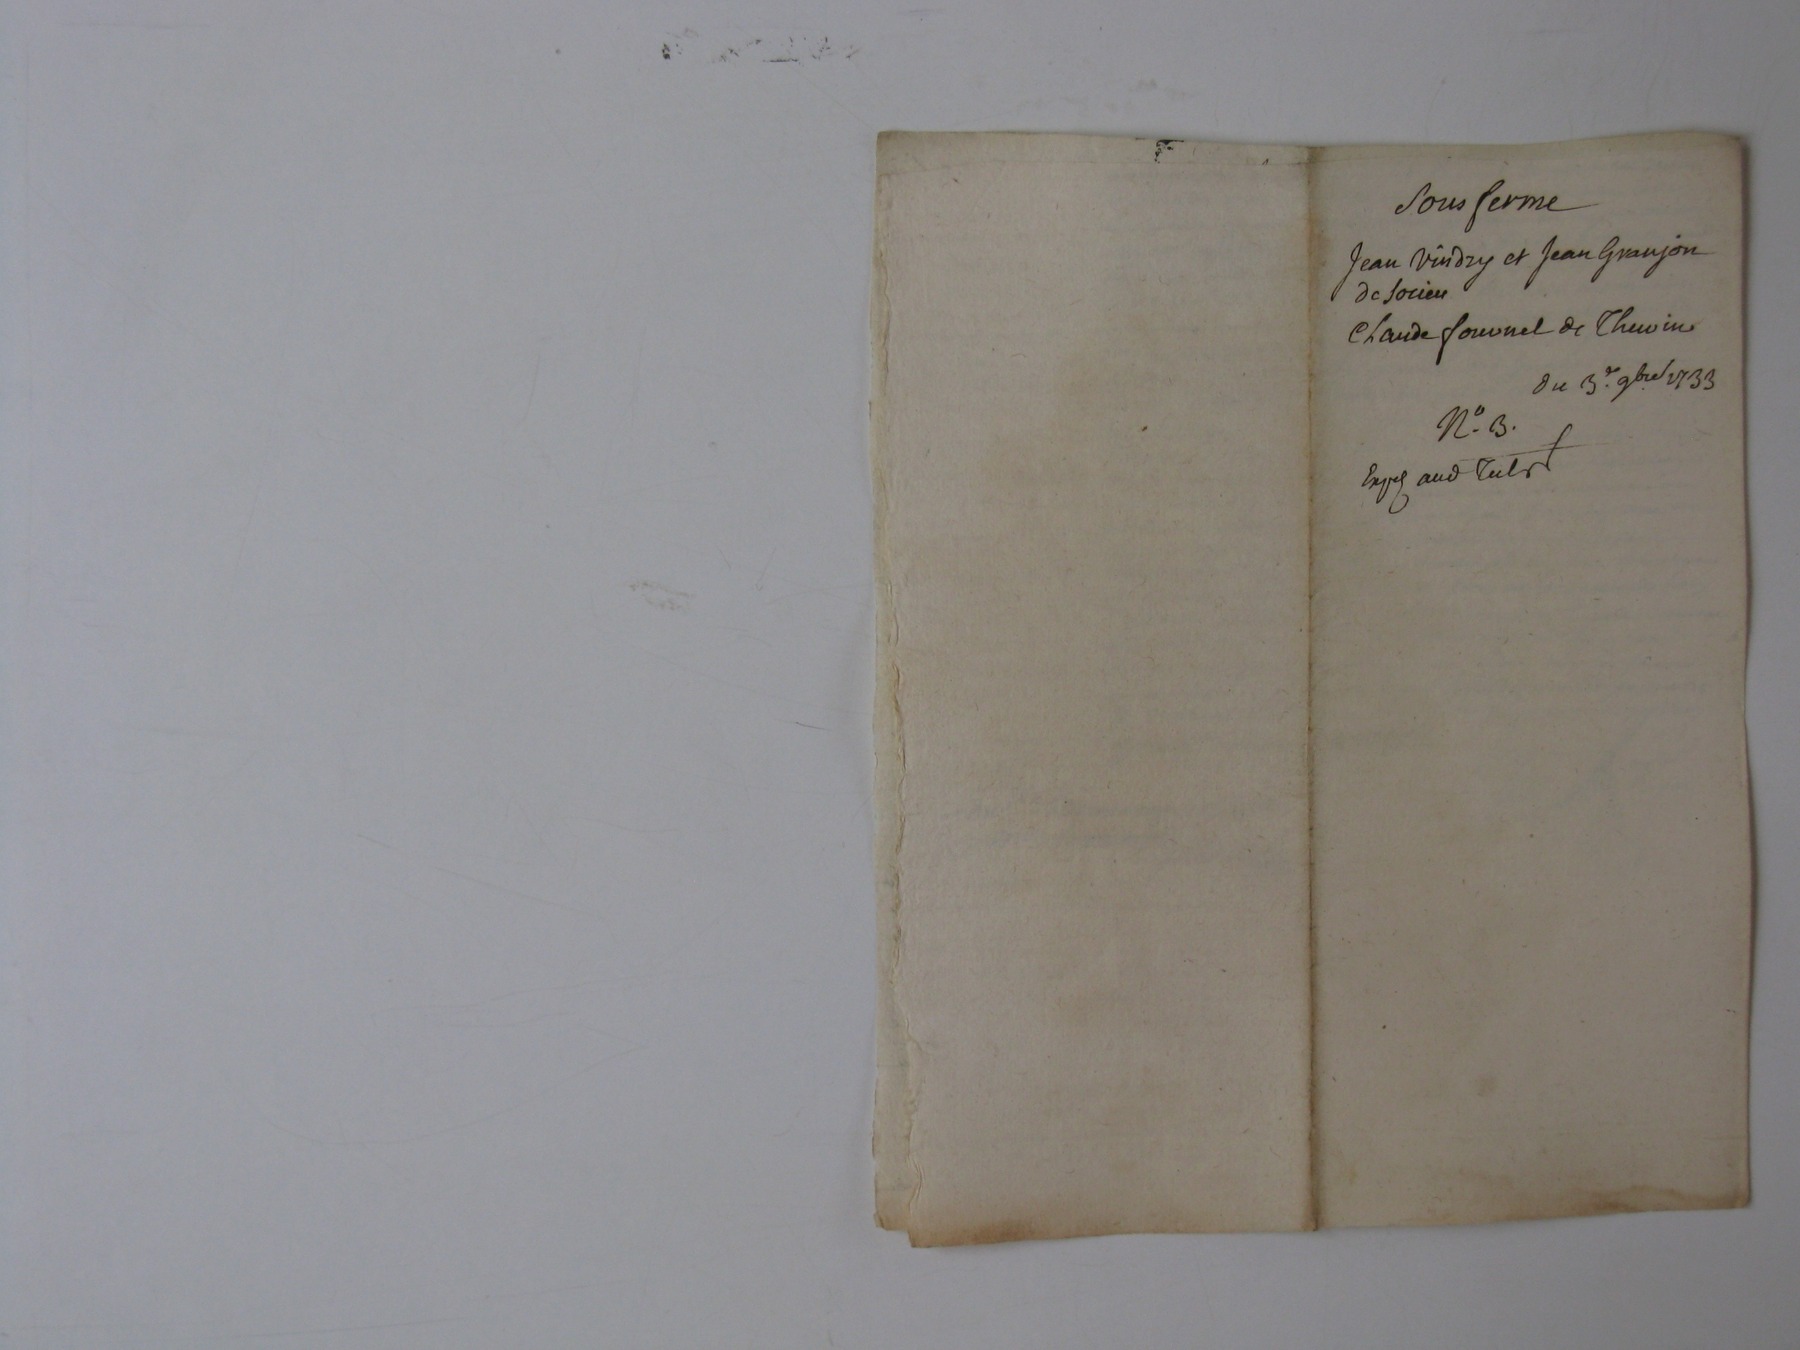 Sous ferme
Jean Vindry et Jean Granjon
de Socieu
Claude fournel de Thurin
du 3.e 9bre 1733
N.o 3.
aud